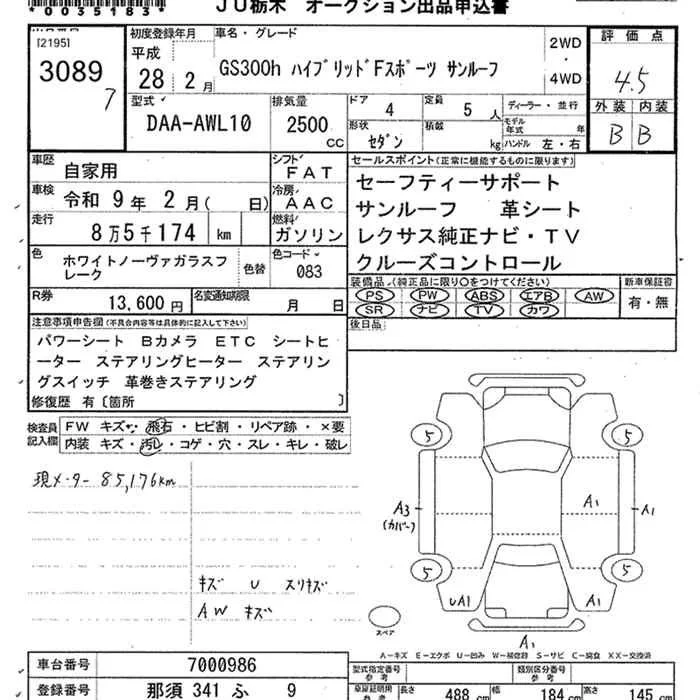 *0035183* JU栃木 オークション出品申込書
[2195]
3089
7
初度登録年月
平成
28年 2月
車名・グレード
GS300h ハイブリッドFスポーツ サンルーフ
2WD
・
4WD
評価点
4.5
外装 内装
B B
型式
DAA-AWL10
排気量
2500
CC
ドア 4 定員 5人
形状 セダン 積載 kg
ディーラー・並行
モデル年式 年
ハンドル 左・右
車歴 自家用
シフト FAT
車検 令和 9年 2月( 日)
冷房 AAC
走行 8万5千174 km
燃料 ガソリン
色 ホワイトノーヴァガラスフレーク
色替
色コード 083
R券 13,600円
名変通知期限 月 日
セールスポイント(正常に機能するものに限ります)
セーフティーサポート
サンルーフ 革シート
レクサス純正ナビ・TV
クルーズコントロール
装備品(純正品に限り○をつけてください)
PS PW ABS エアB AW
SR ナビ TV カワ
新車保証書
有・無
後日品
注意事項申告欄(不具合内容等は具体的に記入して下さい)
パワーシート Bカメラ ETC シートヒ
ーター ステアリングヒーター ステアリン
グスイッチ 革巻きステアリング
修復歴 有〔箇所 〕
検査員記入欄
FW キズ・飛石・ヒビ割・リペア跡・×要
内装 キズ・汚レ・コゲ・穴・スレ・キレ・破レ
現メーター 85,176km
キズ U スリキズ
AW キズ
5 5
A3
(カバー)
A1 A1
5 5
UA1 A1
A1
スペア
A-キズ E-エクボ U-凹み W-補修跡 S-サビ C-腐食 XX-交換済
車台番号 7000986
登録番号 那須 341 ふ 9
型式指定番号 参考
類別区分番号 参考
車庫証明用 参考 長さ 488cm 幅 184cm 高さ 145cm